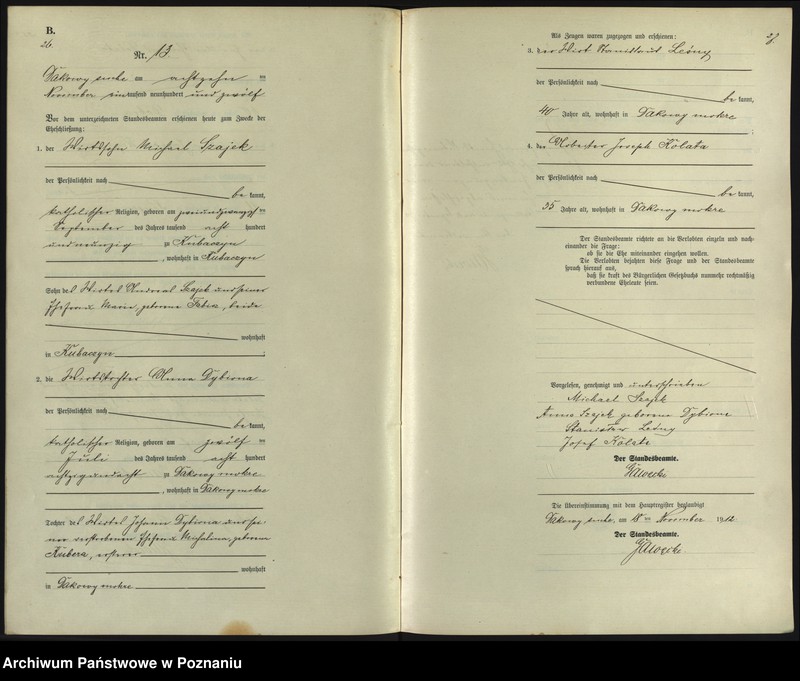 B.
26.
Nr. 13.
Dakowy suche am achtzehn ten
November eintausend neunhundert und zwölf
Vor dem unterzeichneten Standesbeamten erschienen heute zum Zwecke der
Eheschließung:
1. der Wirtssohn Michael Szajek
der Persönlichkeit nach
be kannt,
katholischer Religion, geboren am zweiundzwanzigsten
September des Jahres tausend acht hundert
undneunzig zu Kubaczyn
, wohnhaft in Kubaczyn
Sohn des Wirtes Andreas Szajek und seiner
Ehefrau Marie, geborene beide
wohnhaft
in Kubaczyn
2. die Wirtstochter Anna Dybiona
der Persönlichkeit nach
be kannt,
katholischer Religion, geboren am zwölf ten
Juli des Jahres tausend acht hundert
achtzigundacht zu Dakowy mokre
, wohnhaft in Dakowy mokre
Tochter des Wirtes Johann Dybiona und sei-
ner verstorbenen Ehefrau Michalina, geborene
Kubera, ersterer
wohnhaft
in Dakowy mokre
27.
Als Zeugen waren zugezogen und erschienen:
3. der Wirt Stanislaus Leśny
der Persönlichkeit nach
be kannt,
40 Jahre alt, wohnhaft in Dakowy mokre
4. der Arbeiter Joseph Kolata
der Persönlichkeit nach
be kannt,
55 Jahre alt, wohnhaft in Dakowy mokre
Der Standesbeamte richtete an die Verlobten einzeln und nach-
einander die Frage:
ob sie die Ehe miteinander eingehen wollen.
Die Verlobten bejahten diese Frage und der Standesbeamte
sprach hierauf aus,
daß sie kraft des Bürgerlichen Gesetzbuchs nunmehr rechtmäßig
verbundene Eheleute seien.
Vorgelesen, genehmigt und unterschrieben
Michael Szajek
Anna Szajek geborene Dybiona
Stanisław Leśny
Josef Kolata
Der Standesbeamte.
Die Übereinstimmung mit dem Hauptregister beglaubigt
Dakowy suche, am 18 ten November 1912
Der Standesbeamte.
Archiwum Państwowe w Poznaniu